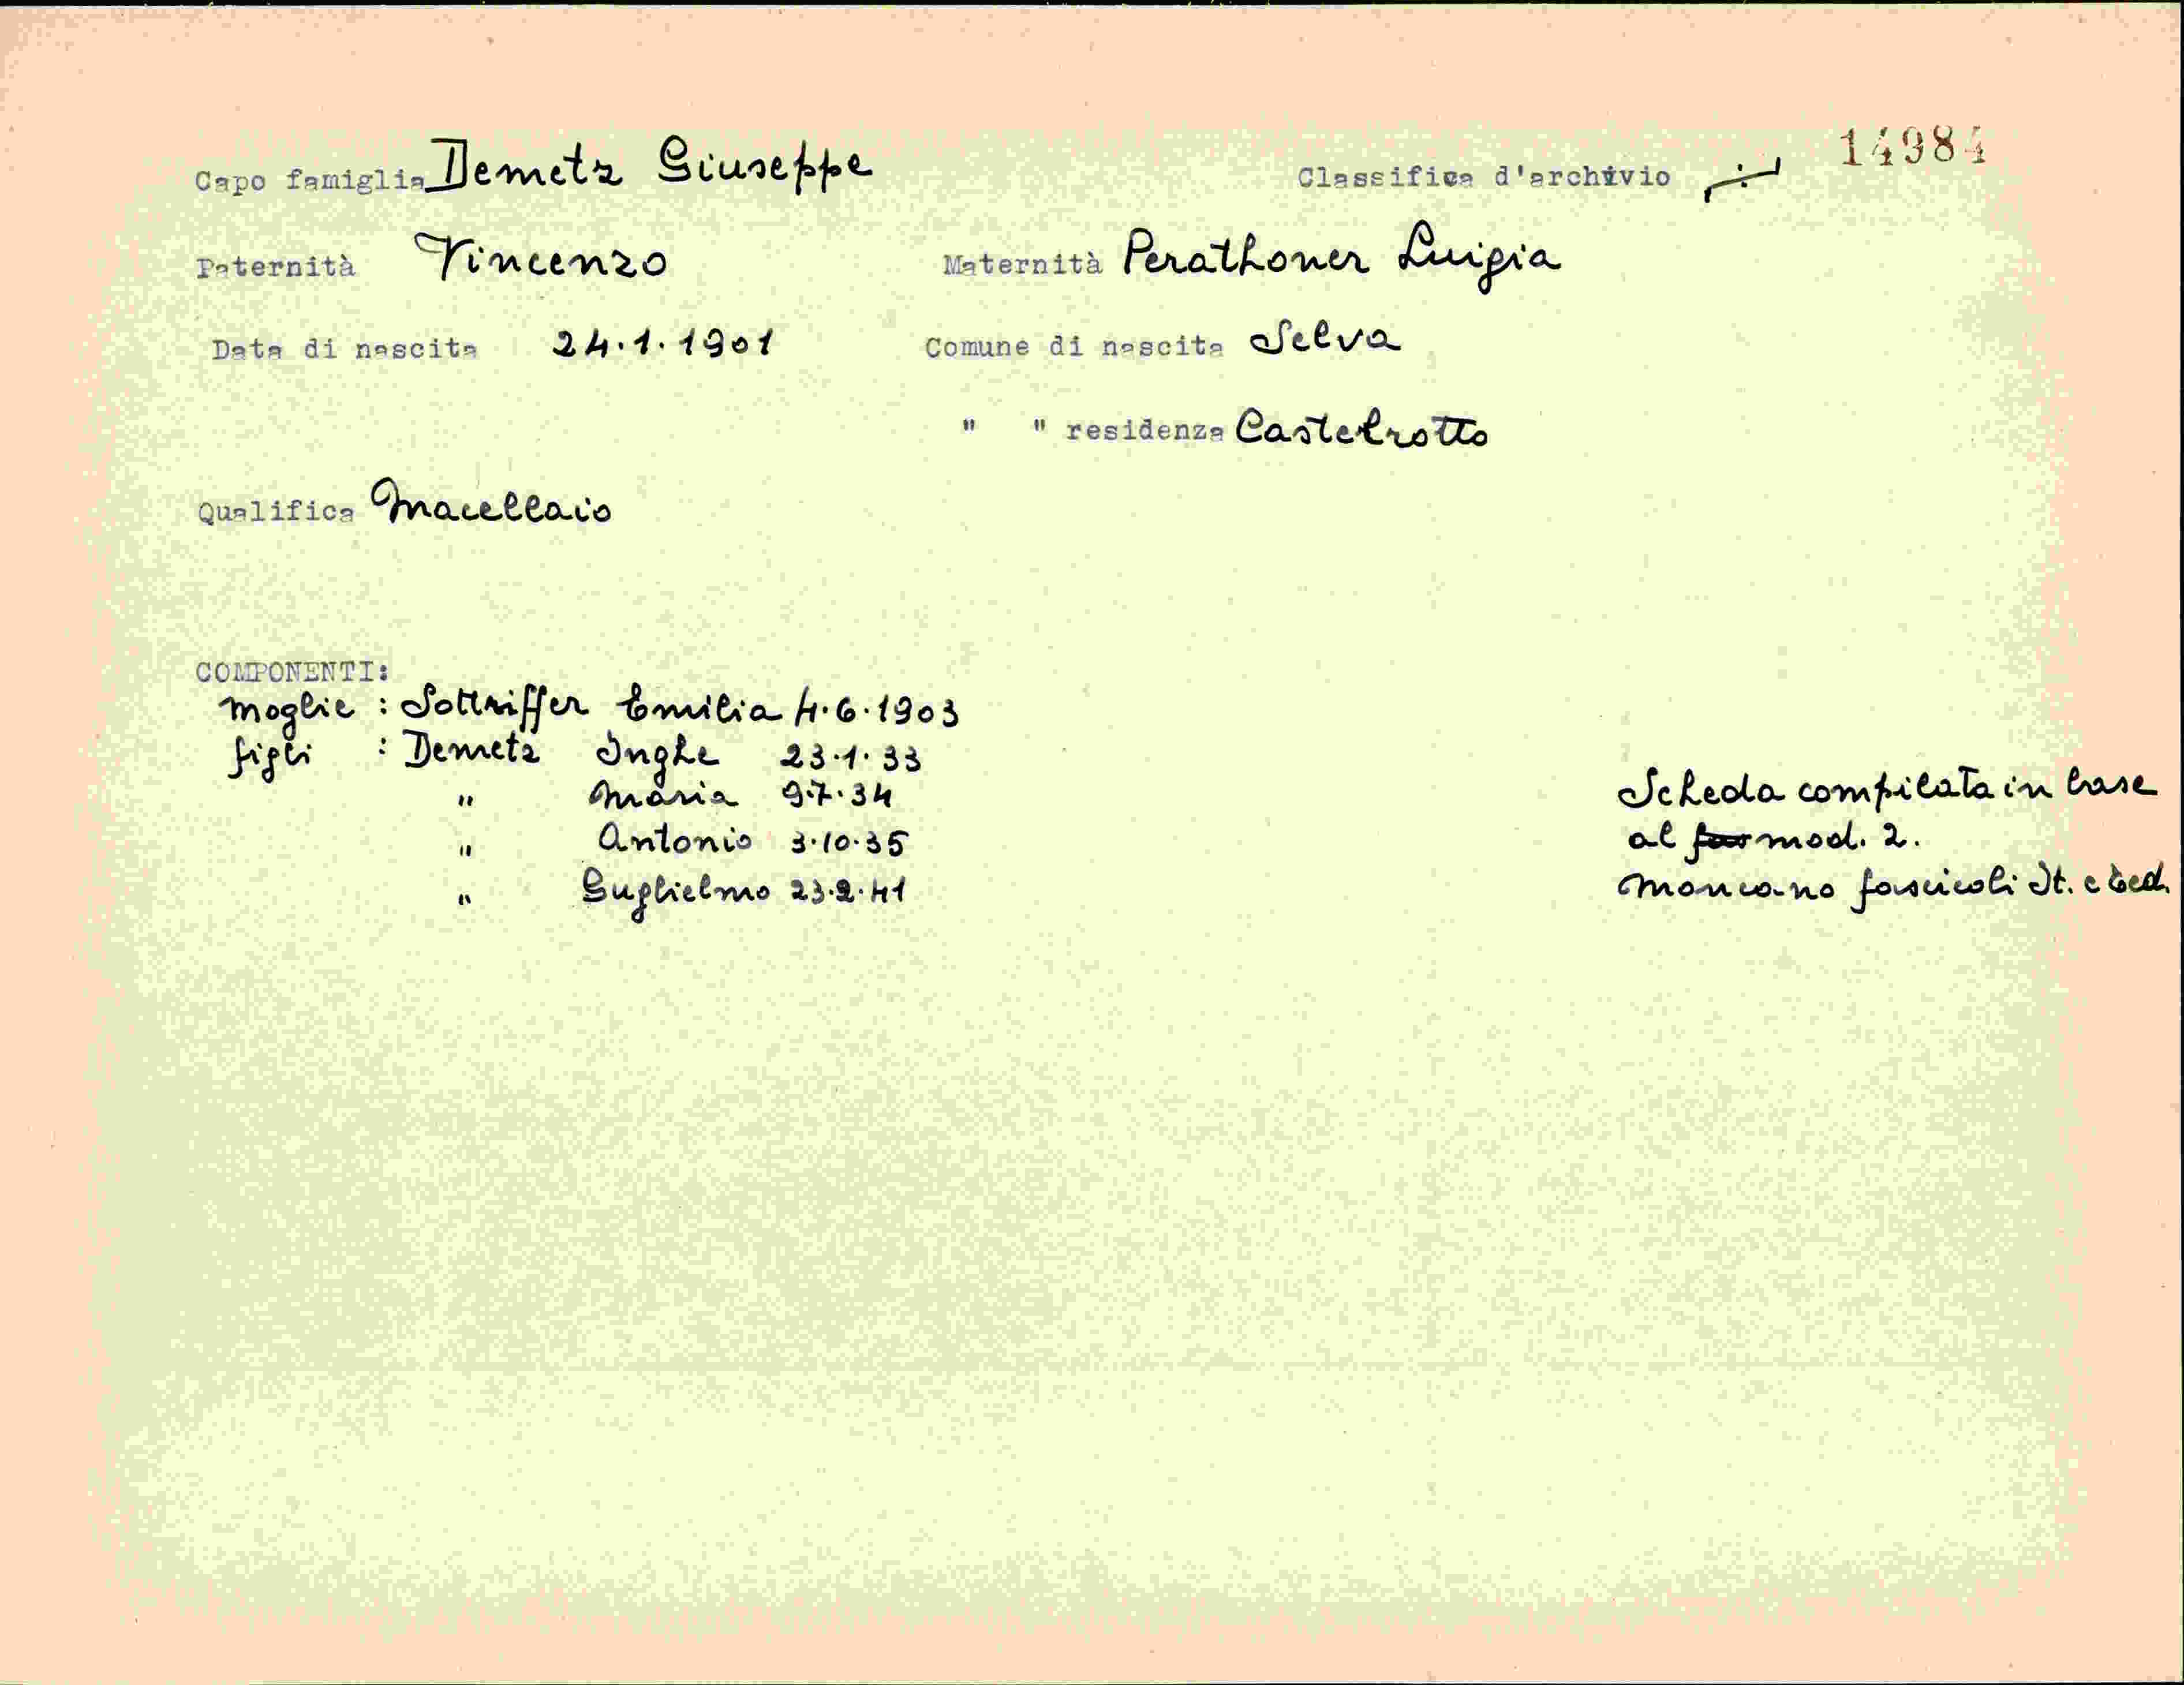 Capo famiglia Demetz Giuseppe Classifica d'archivio ·/· 14984
Paternità Vincenzo Maternità Perathoner Luigia
Data di nascita 24.1.1901 Comune di nascita Selva
" " residenza Castelrotto
Qualifica Macellaio
COMPONENTI:
moglie : Sottriffer Emilia 4.6.1903
figli : Demetz Inghe 23.1.33
" Maria 9.7.34
" Antonio 3.10.35
" Guglielmo 23.2.41
Scheda compilata in base
al mod. 2.
Mancano fascicoli It. e Ted.